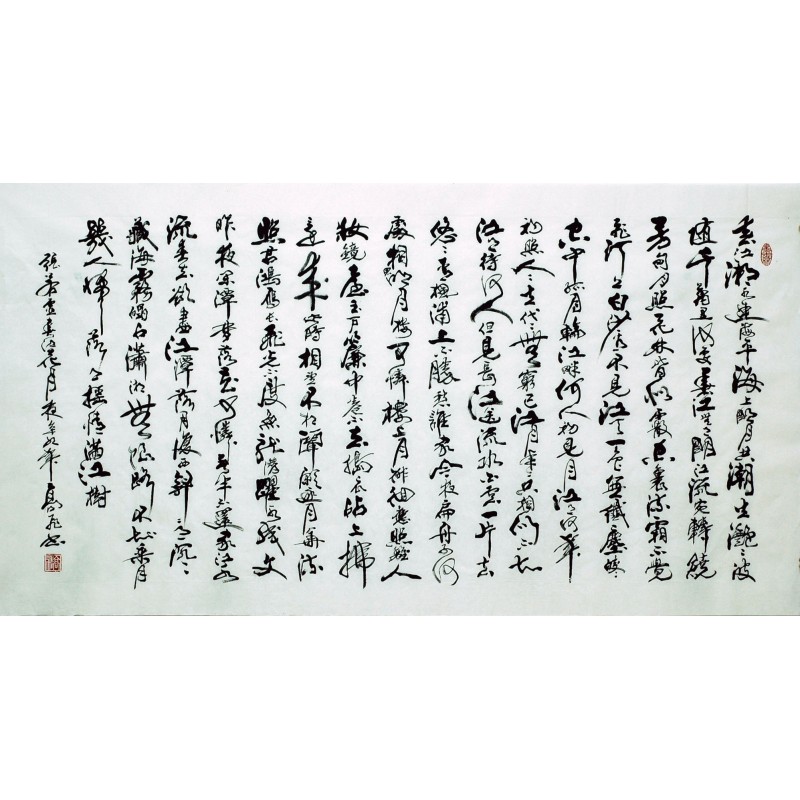 春江潮水連海平海上明月共潮生灩灩波
隨千萬里何處春江無月明江流宛轉繞
芳甸月照花林皆似霰空裏流霜不覺
飛汀上白沙看不見江天一色無纖塵皎
空中孤月輪江畔何人初見月江月何年
初照人人生代代無窮已江月年年只相似不知
江月待何人但見長江送流水白雲一片去
悠悠青楓浦上不勝愁誰家今夜扁舟子何
處相思明月樓可憐樓上月徘徊應照離人
妝鏡臺玉戶簾中卷不去搗衣砧上拂
還來此時相望不相聞願逐月華流
照君鴻雁長飛光不度魚龍潛躍水成文
昨夜閑潭夢落花可憐春半不還家江水
流春去欲盡江潭落月復西斜斜月沉沉
藏海霧碣石瀟湘無限路不知乘月
幾人歸落月搖情滿江樹
張若虛春江花月夜